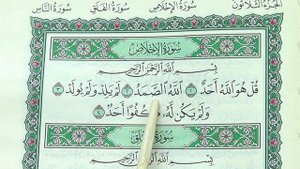 الجزء الثلاثون سورة الإخلاص سورة الفلق سورة الناس
سورة الإخلاص
بسم الله الرحمن الرحيم
قل هو الله أحد ١ الله الصمد ٢ لم يلد ولم يولد ٣
ولم يكن له كفوا أحد ٤
سورة الفلق
بسم الله الرحمن الرحيم